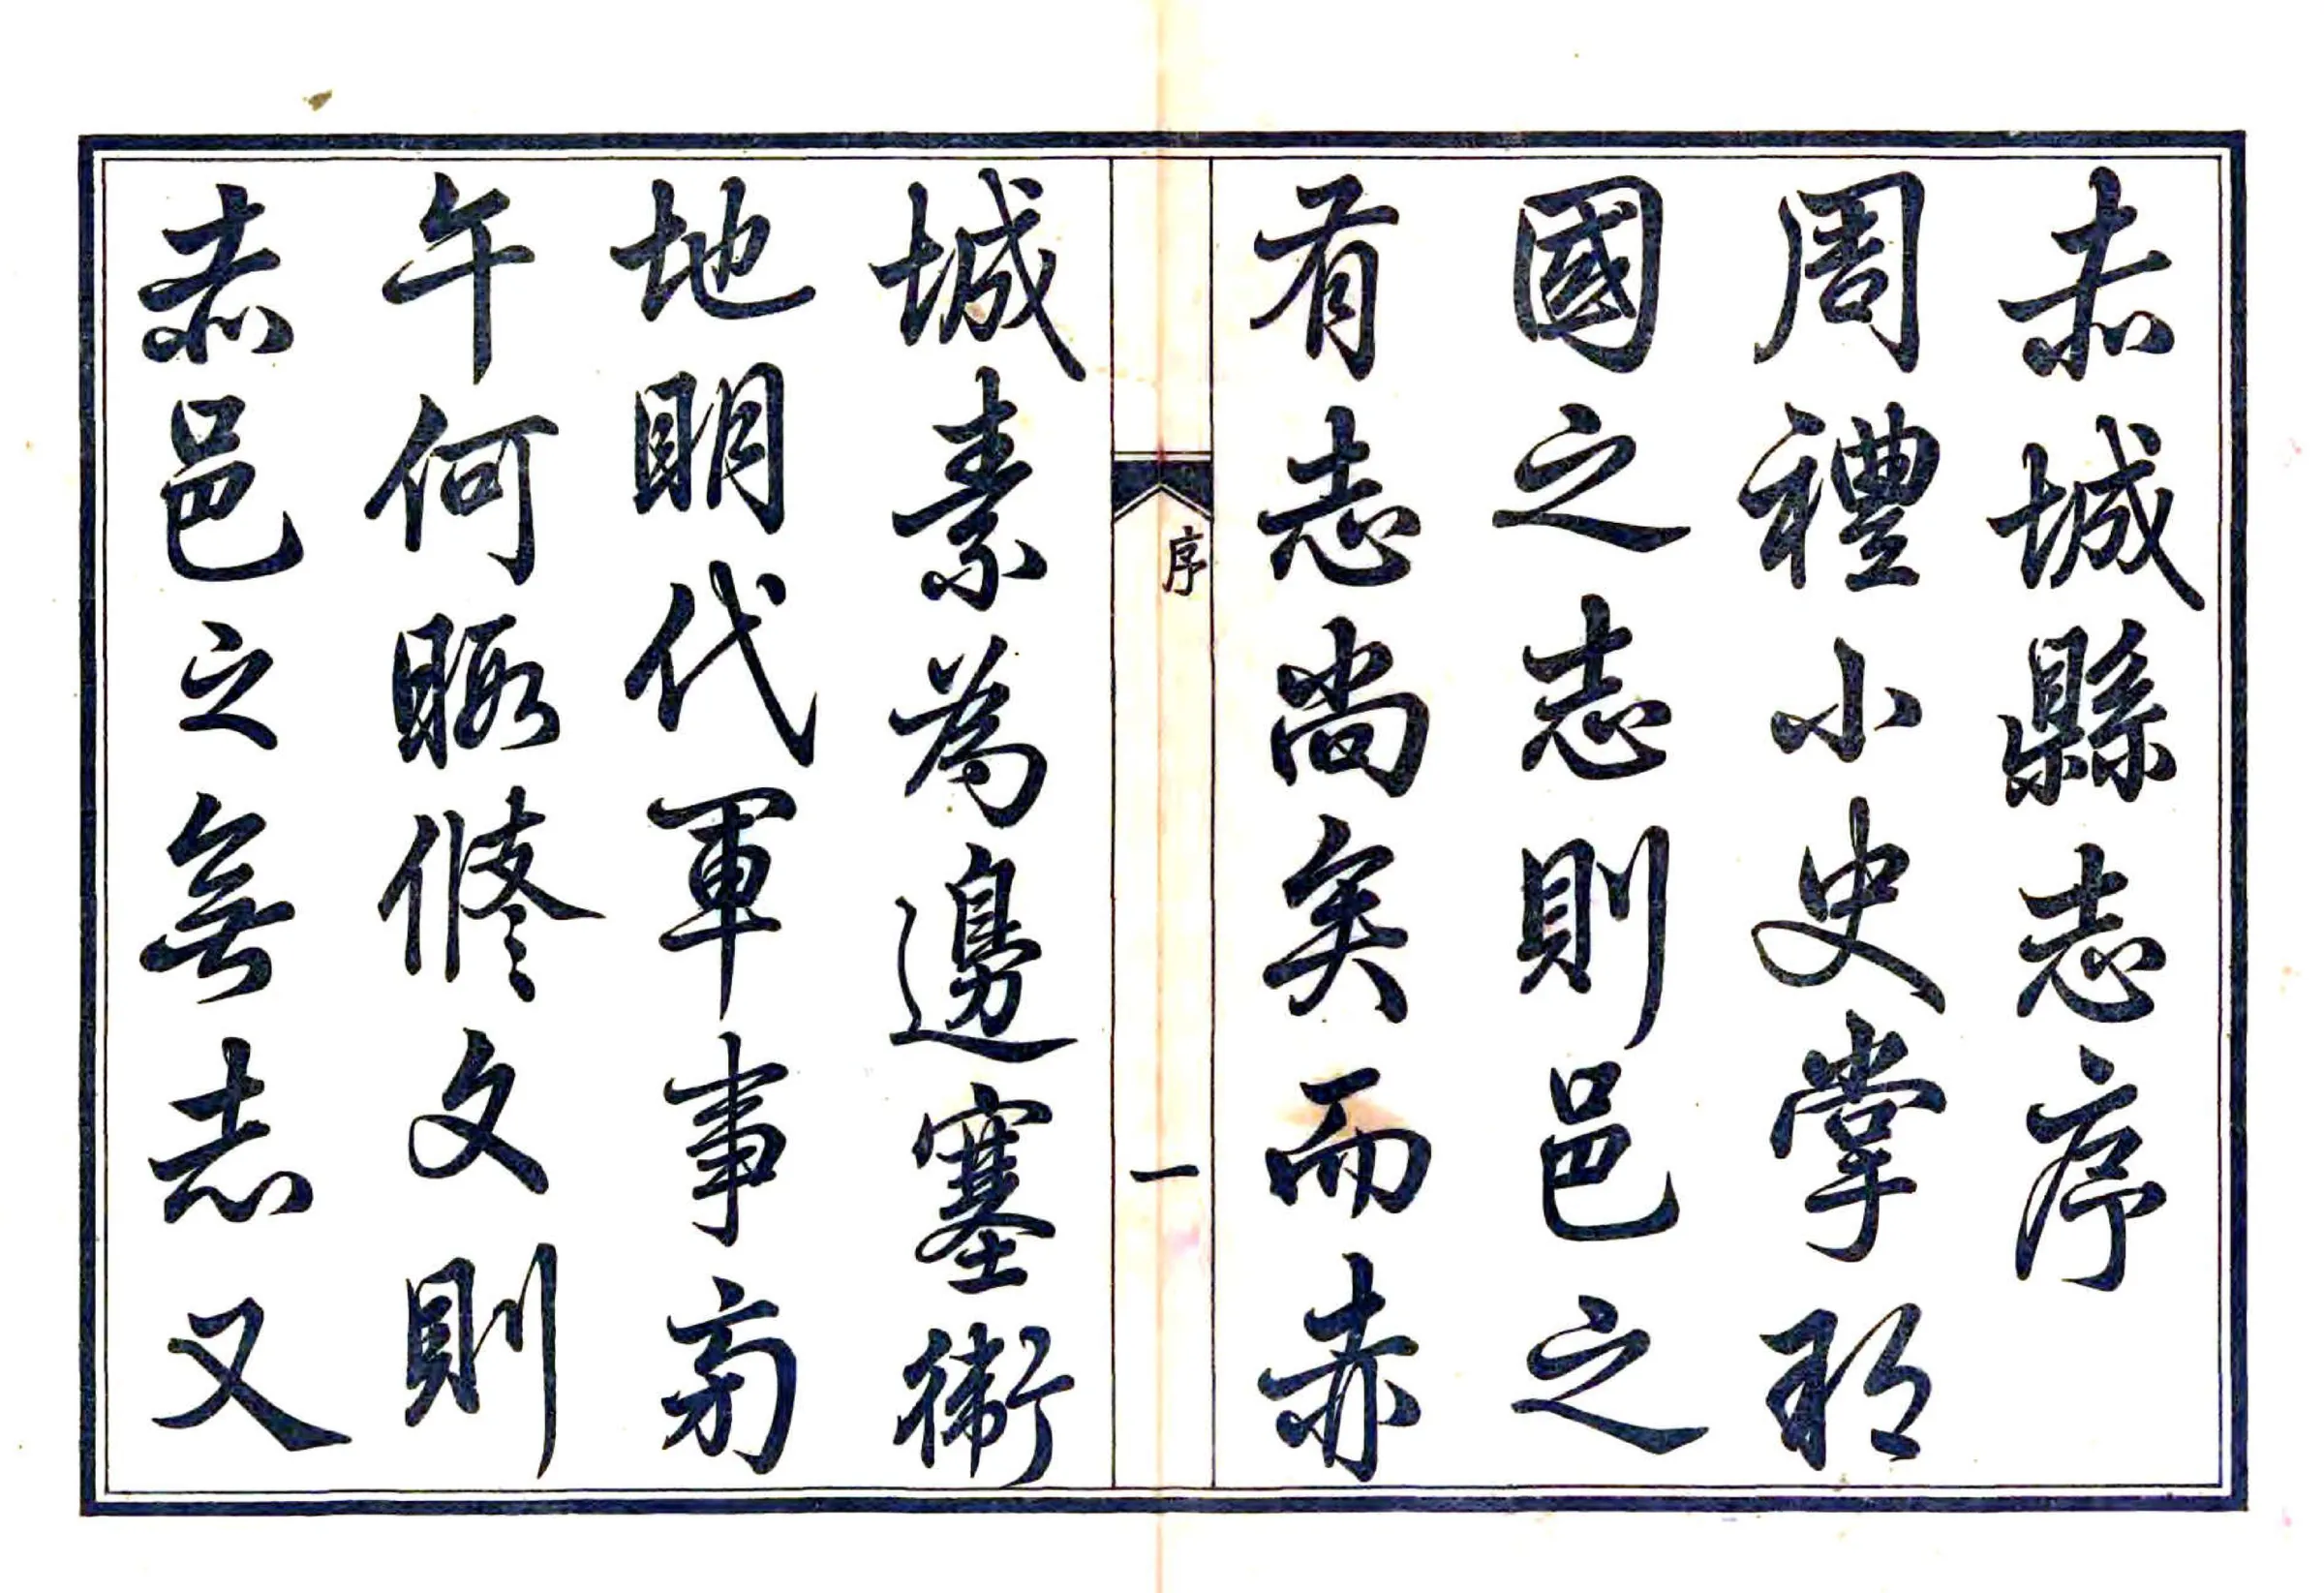 赤城縣志序
周禮小史掌邦
國之志則邑之
有志尚矣而赤
序
一
城素為邊塞衝
地明代軍事旁
午何暇修文則
赤邑之無志又